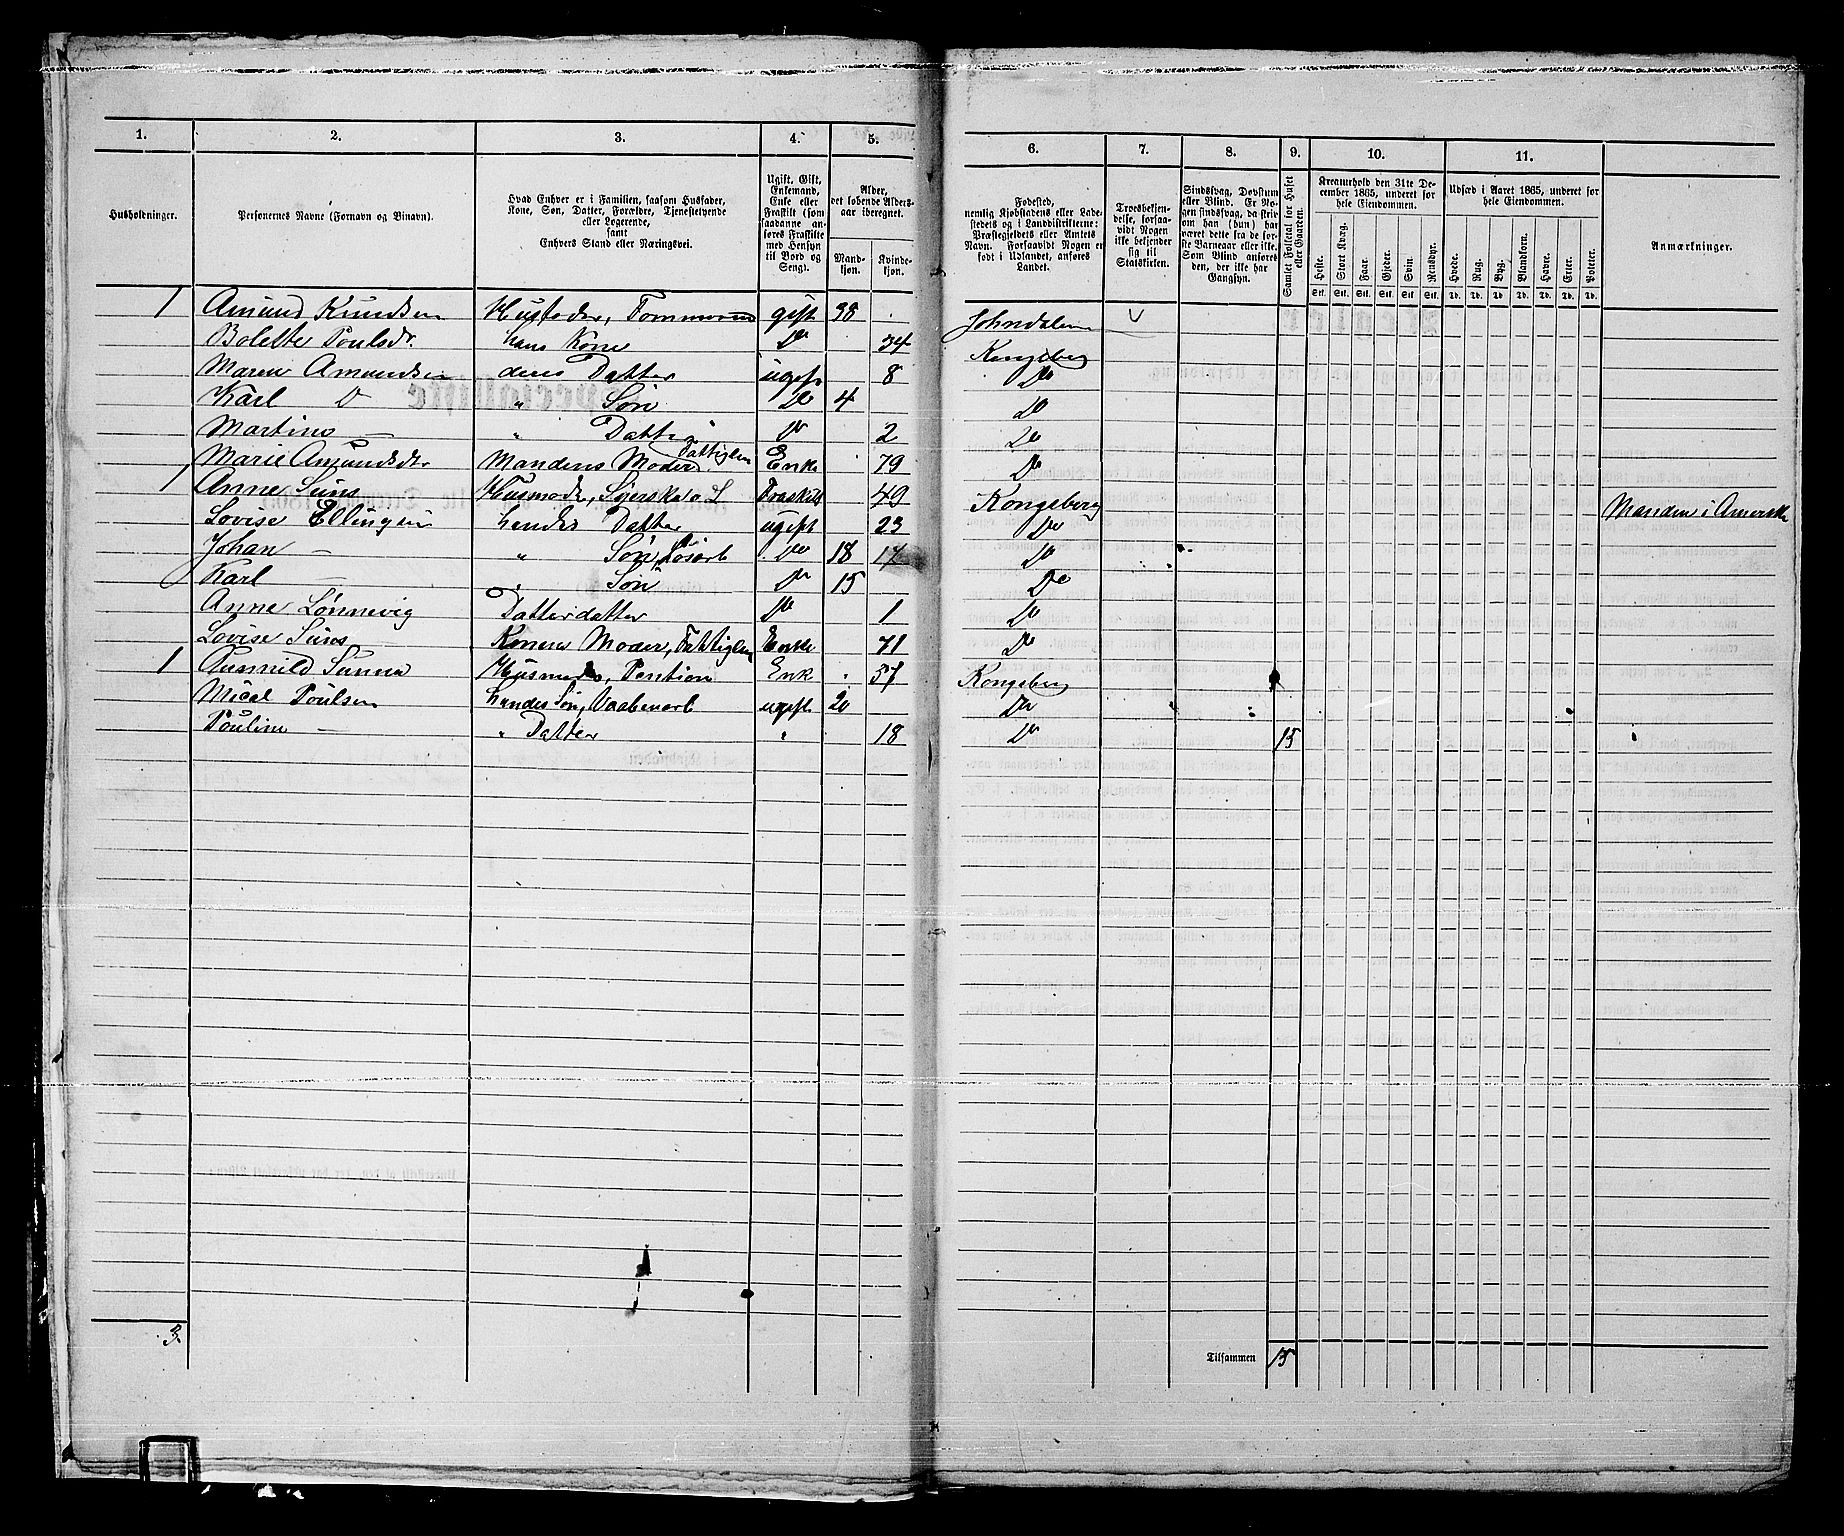 1. 2. 3. 4. 5. 6. 7. 8. 9. 10. 11.
Husholdninger.
Personernes Navne (Fornavn og Binavn).
Hvad Enhver er i Familien, saasom Husfader,
Kone, Søn, Datter, Forældre, Tjenestetyende
eller Logerende,
samt
Enhvers Stand eller Næringsvei.
Ugift, Gift,
Enkemand,
Enke eller
Fraskilt (som
saadanne an-
føres Fraskilte
med Hensyn
til Bord og
Seng).
Alder,
det løbende Alders-
aar iberegnet.
Mand-
kjøn.
Kvinde-
kjøn.
Fødested,
nemlig Kjøbstadens eller Lade-
stedets og i Landdistrikterne:
Præstegjeldets eller Amtets
Navn. Forsaavidt Nogen er
født i Udlandet, anføres
Landet.
Troesbekjen-
delse, forsaa-
vidt Nogen
ikke bekjender
sig til
Statskirken.
Sindssvag, Døvstum
eller Blind. Er No-
gen sindssvag, da skriv
om han (hun) har
været dette fra de før-
ste Barneaar eller ikke.
Som Blind anføres
den, der ikke har
Gangsyn.
Samlet Folketal for Huset
eller Gaarden.
Kreaturhold den 31te De-
cember 1865, underet for
hele Eiendommen.
Heste. Stort Kvæg. Faar. Gjeder. Svin. Rensdyr.
Stk. Stk. Stk. Stk. Stk. Stk.
Udsæd i Aaret 1865, underet for
hele Eiendommen.
Hvede. Rug. Byg. Blandkorn. Havre. Erter. Poteter.
Td. Td. Td. Td. Td. Td. Td.
Anmærkninger.
1 Amund Knudsen Husfader, gift 38 Johndalen
Bolette Poulsdr. hans Kone Do 34 Kongsberg
Maren Amundsen deres Datter ugift 8 Do
Karl D " Søn Do 4 Do
Martine — " Datter Do 2 Do
Marie Amundsdr Mandens Moder Fattiglem Enke 79 Do
1 Anne Husmoder, Fraskilt 49 Kongsberg Manden i Amerika
Lovise Ellingsen hendes Datter ugift 23 Do
Johan — " Søn, Do 18 17 Do
Karl Søn Do 15 Do
Anne Lønnevig Datterdatter Do 1 Do
Lovise Konens Moder, Fattiglem Enke 71 Do
1 Gunnild Husmoder, Pention Enk 57 Kongsberg
Poulsen hendes Søn, ugift 20 Do
Pouline — " Datter " 18 Do 15
3.
Tilsammen 15